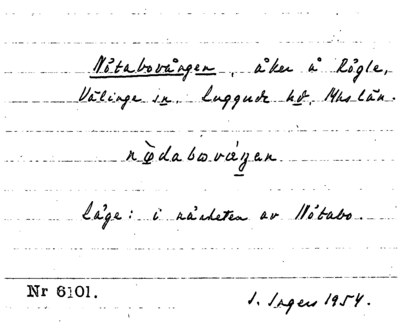 Nötabovången, åker å Rögle,
Välinge sn. Luggude hd, Mhs län.
nø̀dabωvάŋen
Läge: i närheten av Nötabo.
Nr 6101.
I. Ingers 1954.